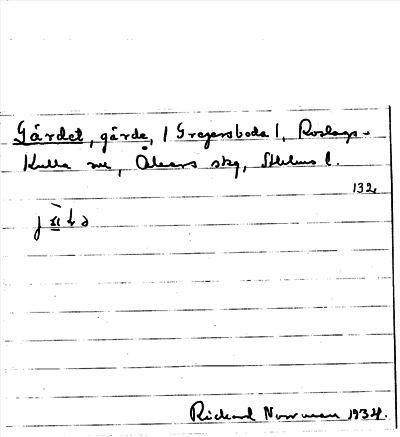 Gärdet, gärde, / Gregersboda /, Roslags-
Kulla sn, Åkers skg, Sthlms l.
132
Rickard Norrman 1934.